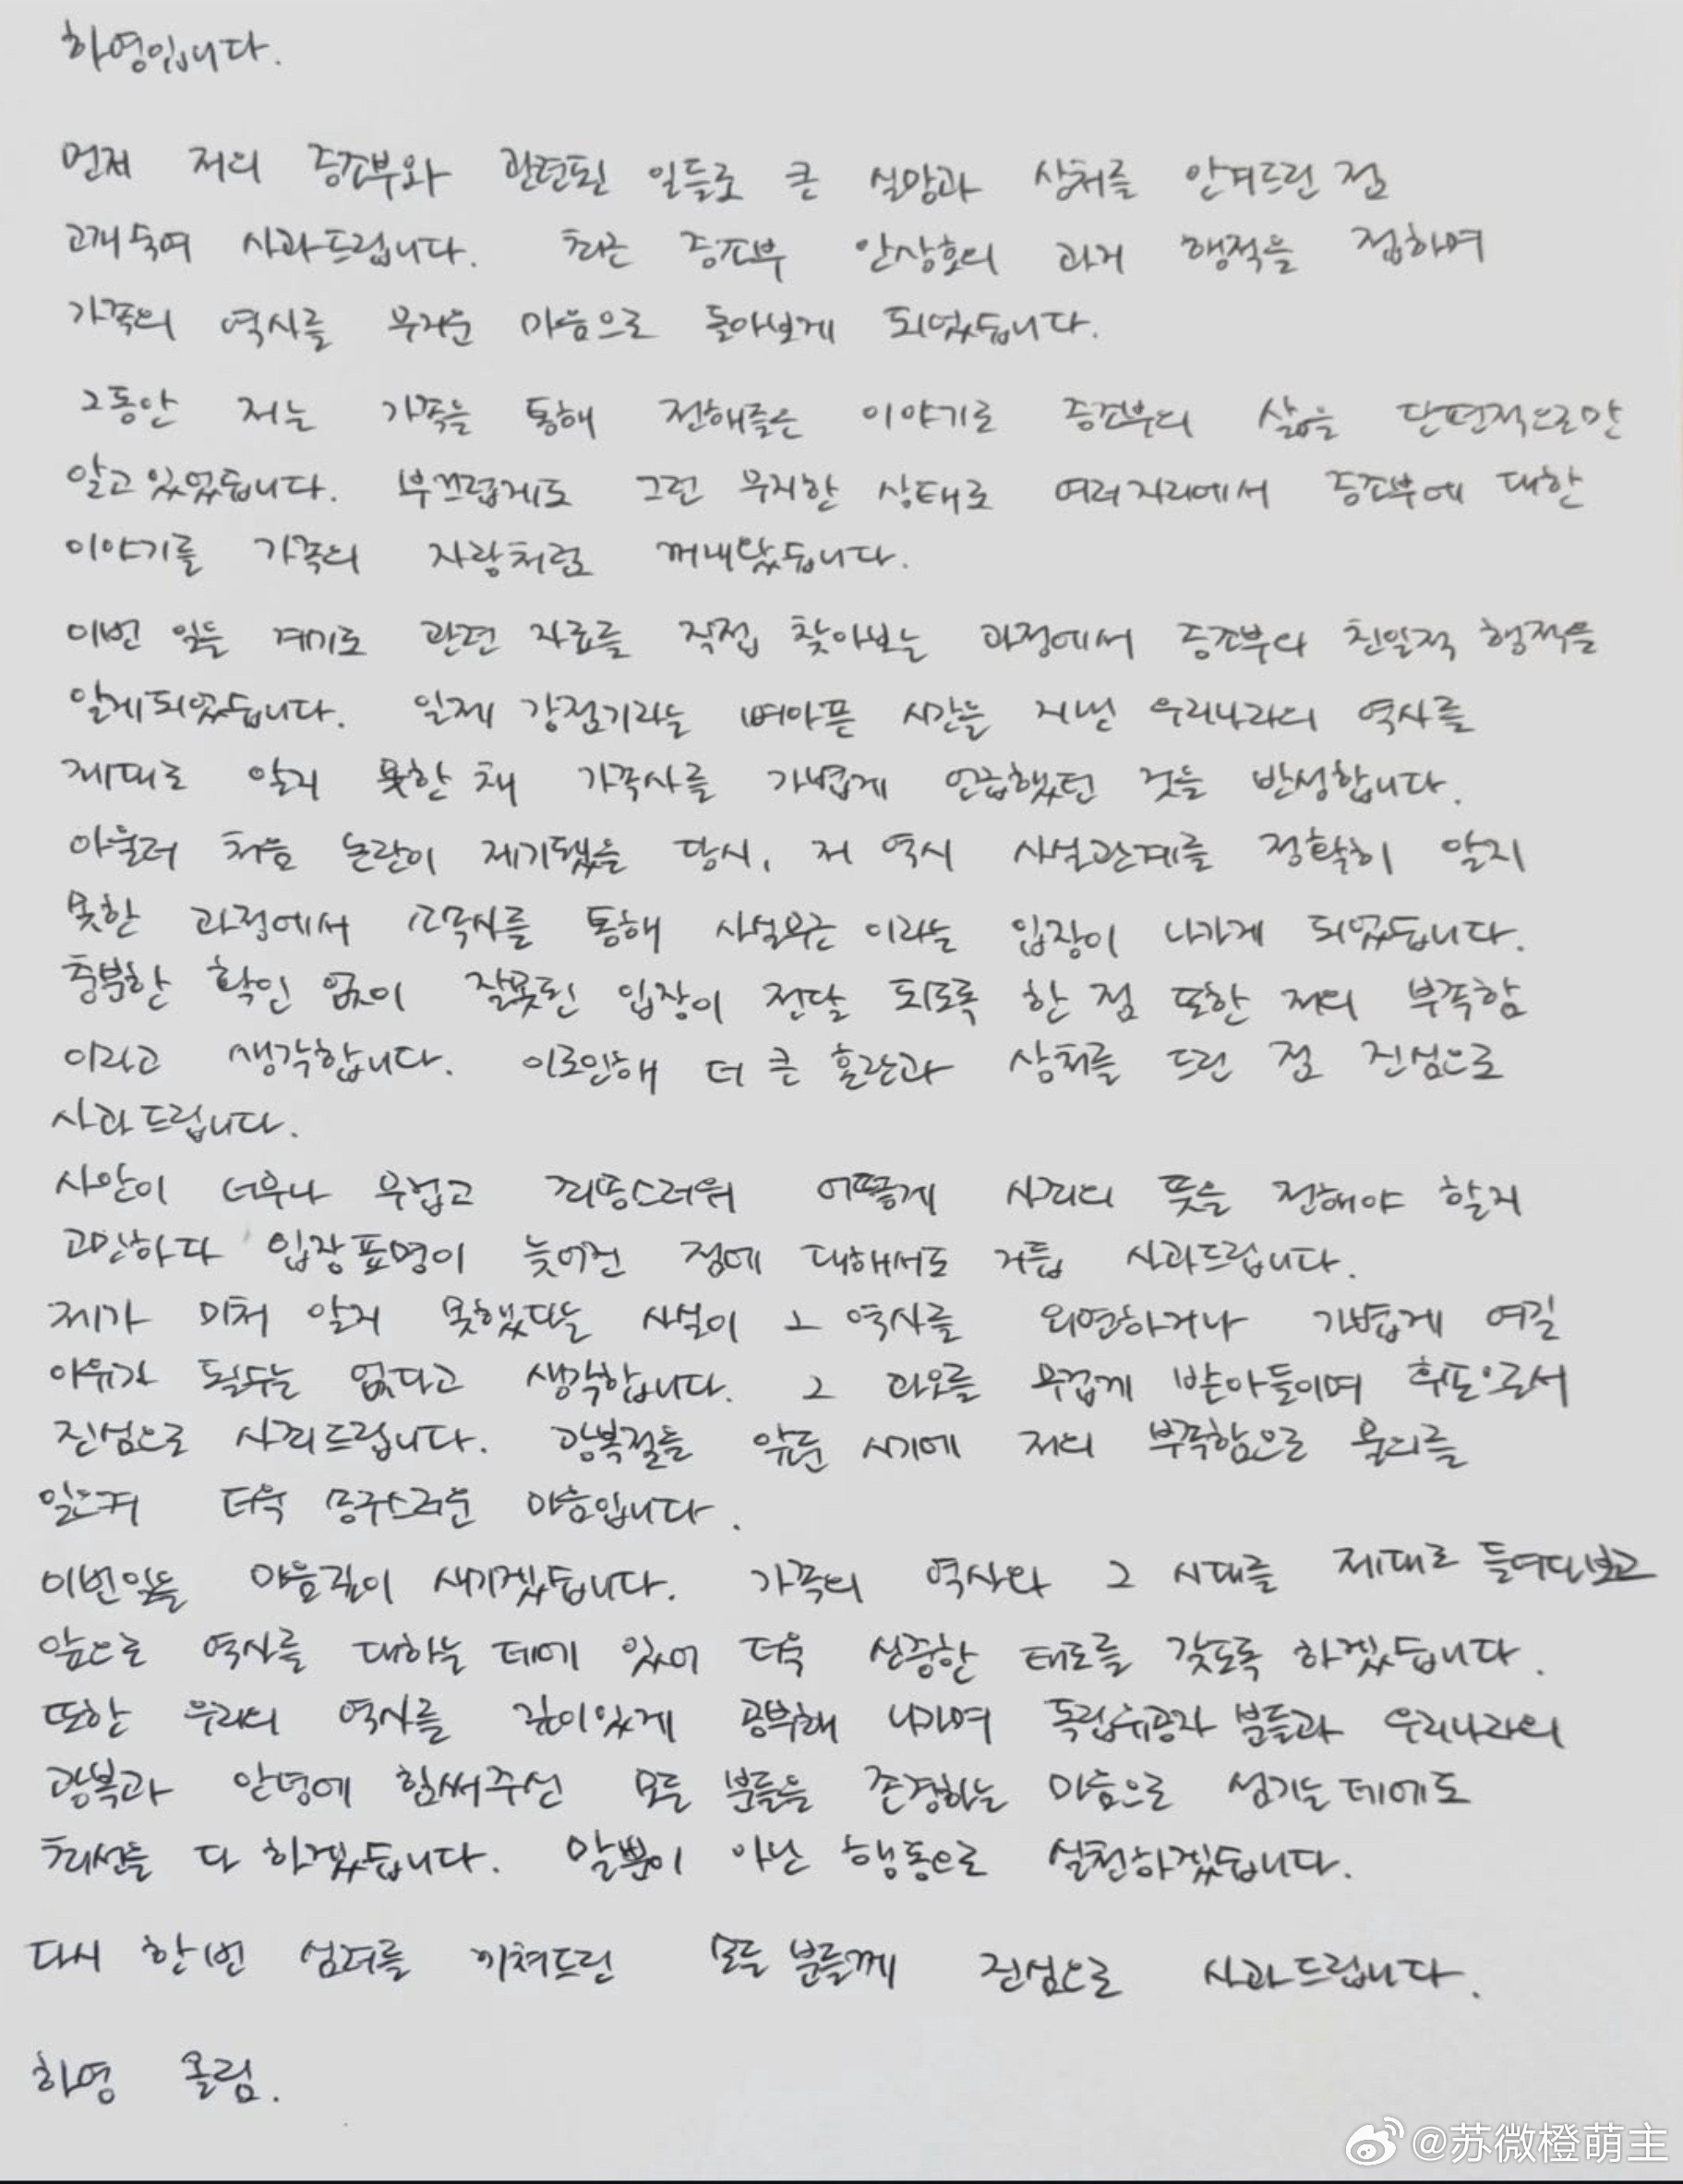 하영입니다.
먼저 저의 증조부와 관련된 일들로 큰 실망과 상처를 안겨드린 점
고개숙여 사과드립니다. 최근 증조부 안상호의 과거 행적을 접하며
가족의 역사를 무거운 마음으로 돌아보게 되었습니다.
그동안 저는 가족을 통해 전해들은 이야기로 증조부의 삶을 단편적으로만
알고있었습니다. 부끄럽게도 그런 무지한 상태로 여러자리에서 증조부에 대한
이야기를 가족의 자랑처럼 꺼내왔습니다.
이번 일을 계기로 관련 자료를 직접 찾아보는 과정에서 증조부의 친일적 행적을
알게되었습니다. 일제 강점기라는 뼈아픈 시간을 지낸 우리나라의 역사를
제대로 알지 못한 채 가족사를 가볍게 언급했던 것을 반성합니다.
아울러 처음 논란이 제기됐을 당시, 저 역시 사실관계를 정확히 알지
못한 과정에서 소속사를 통해 사실무근 이라는 입장이 나가게 되었습니다.
충분한 확인 없이 잘못된 입장이 전달 되도록 한 점 또한 저의 부족함
이라고 생각합니다. 이로인해 더 큰 혼란과 상처를 드린 점 진심으로
사과드립니다.
사안이 너무나 무겁고 죄송스러워 어떻게 사죄의 뜻을 전해야 할지
고민하다 입장표명이 늦어진 점에 대해서도 거듭 사과드립니다.
제가 미처 알지 못했다는 사실이 그 역사를 외면하거나 가볍게 여길
이유가 될수는 없다고 생각합니다. 그 과오를 무겁게 받아들이며 후손으로서
진심으로 사죄드립니다. 광복절을 앞둔 시기에 저의 부족함으로 물의를
일으켜 더욱 송구스러운 마음입니다.
이번일을 마음깊이 새기겠습니다. 가족의 역사와 그 시대를 제대로 들여다보고
앞으로 역사를 대하는 데에 있어 더욱 신중한 태도를 갖도록 하겠습니다.
또한 우리의 역사를 깊이있게 공부해 나가며 독립유공자 분들과 우리나라의
광복과 안녕에 힘써주신 모든 분들을 존경하는 마음으로 섬기는 데에도
최선을 다 하겠습니다. 말뿐이 아닌 행동으로 실천하겠습니다.
다시 한번 심려를 끼쳐드린 모든 분들께 진심으로 사과드립니다.
하영 올림.
@苏微橙萌主